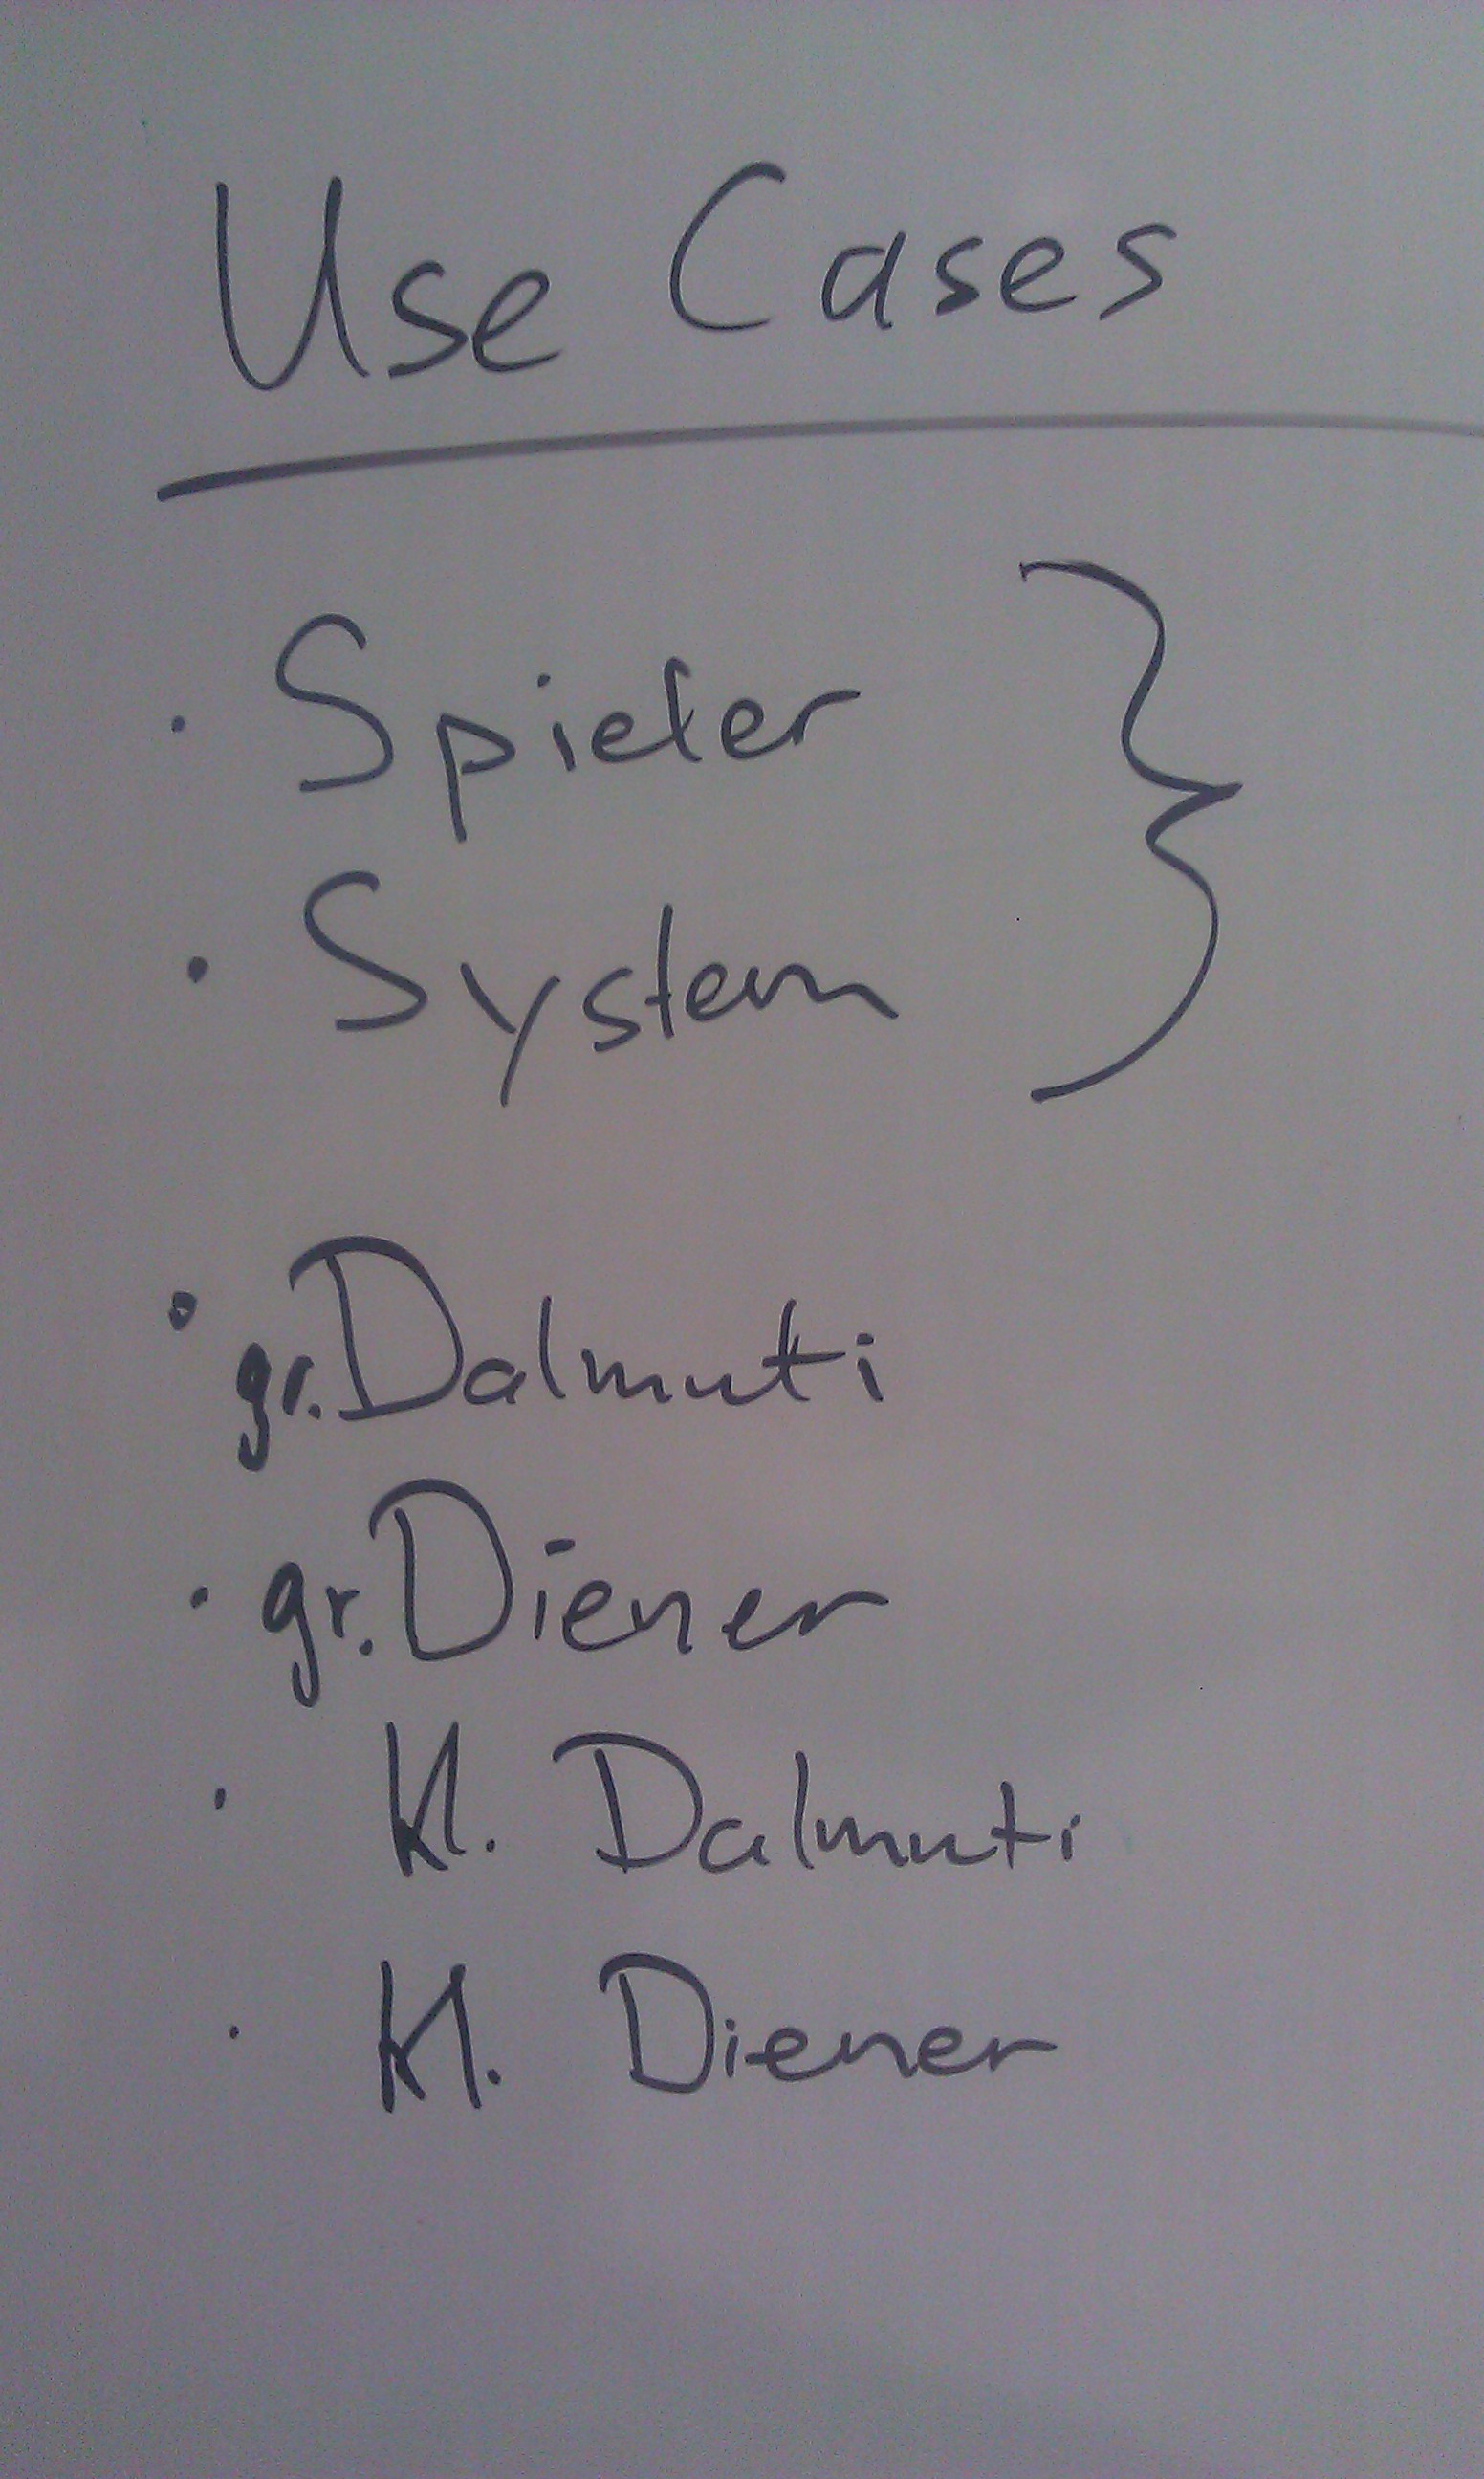 Use Cases
· Spieler
· System
· gr. Dalmuti
· gr. Diener
· Kl. Dalmuti
· Kl. Diener